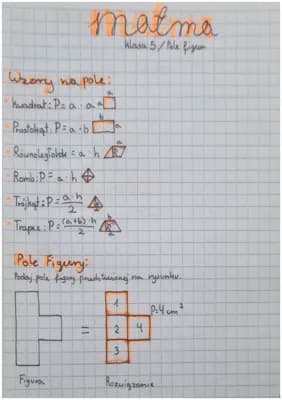 matma
Klasa 5 / Pole figur
Wzory na pole:
• Kwadrat: P = a · a a
• Prostokąt: P = a · b b a
• Równoległobok = a · h a h
• Romb: P = a · h
• Trójkąt: P = a·h/2 h a
• Trapez: P = (a+b)·h/2 b h a
Pole Figury:
Podaj pole figury przedstawionej na rysunku.
1
P=4cm²
= 2 4
3
Figura Rozwiązanie